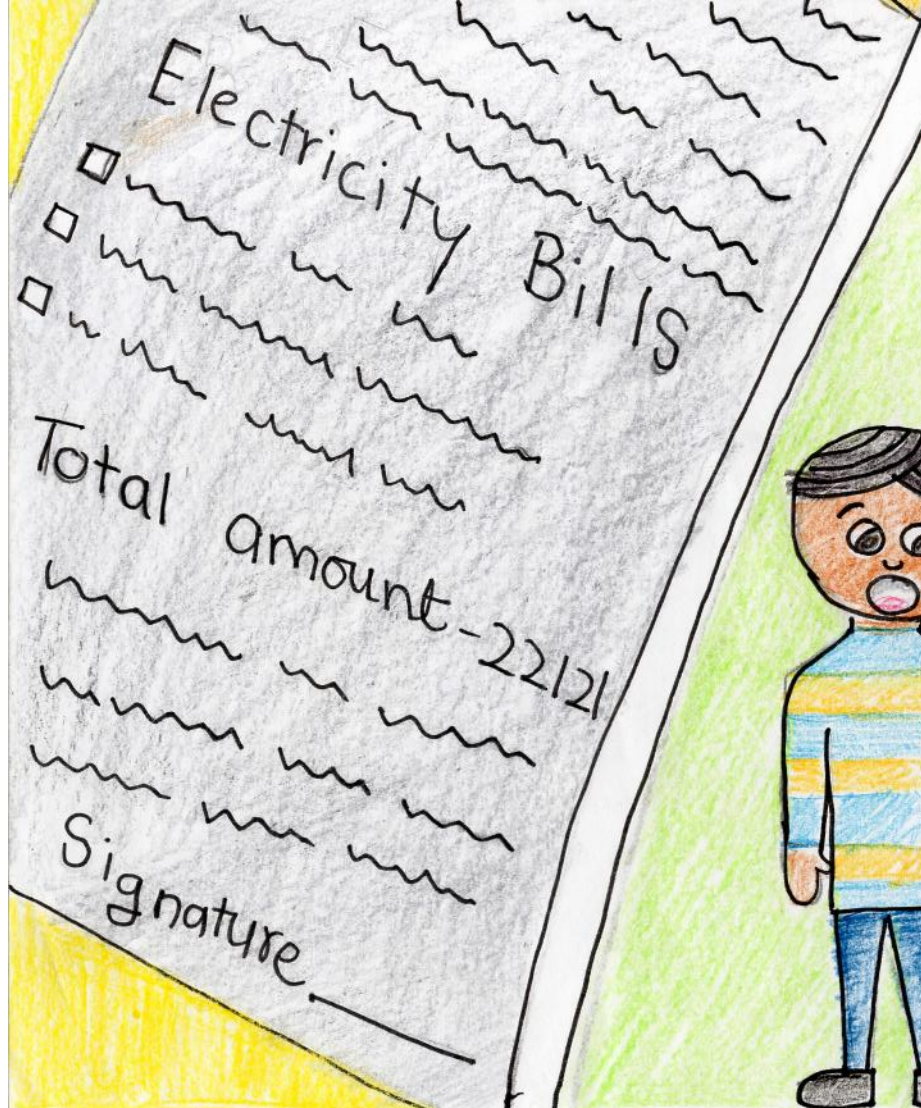 Electricity Bills
Total amount-22121
Signature